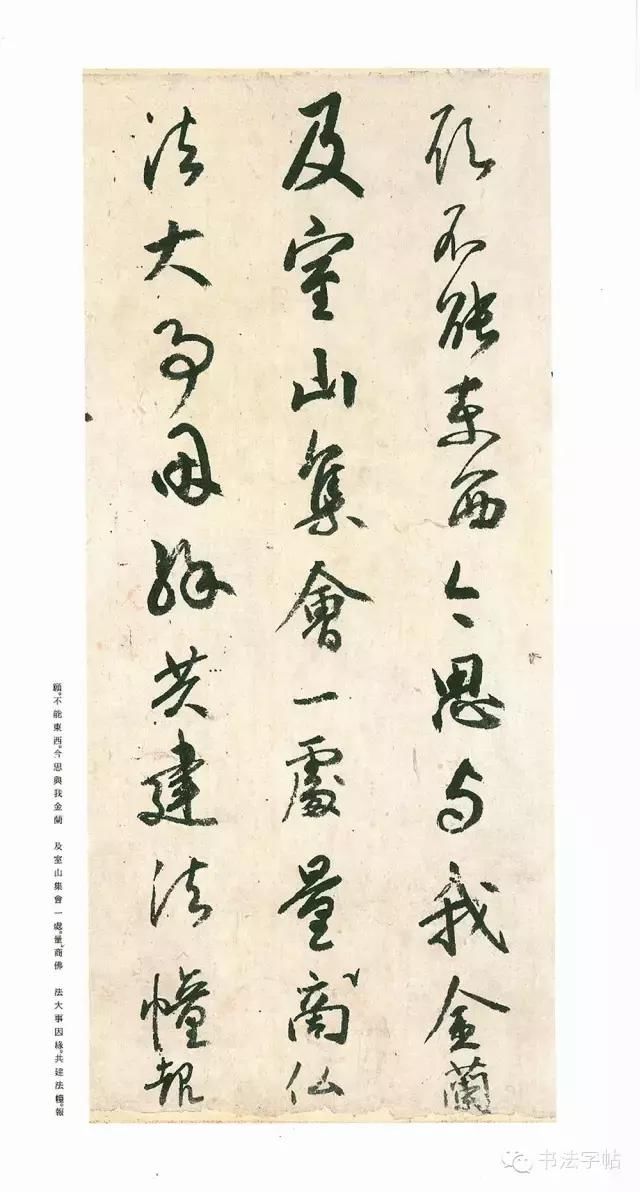 願不能東西今思与我金蘭
及室山集會一處量商仏
法大事因緣共建法幢報
願。不能東西。今思與我金蘭　及室山集會一處。量商佛　法大事因緣。共建法幢。報
书法字帖